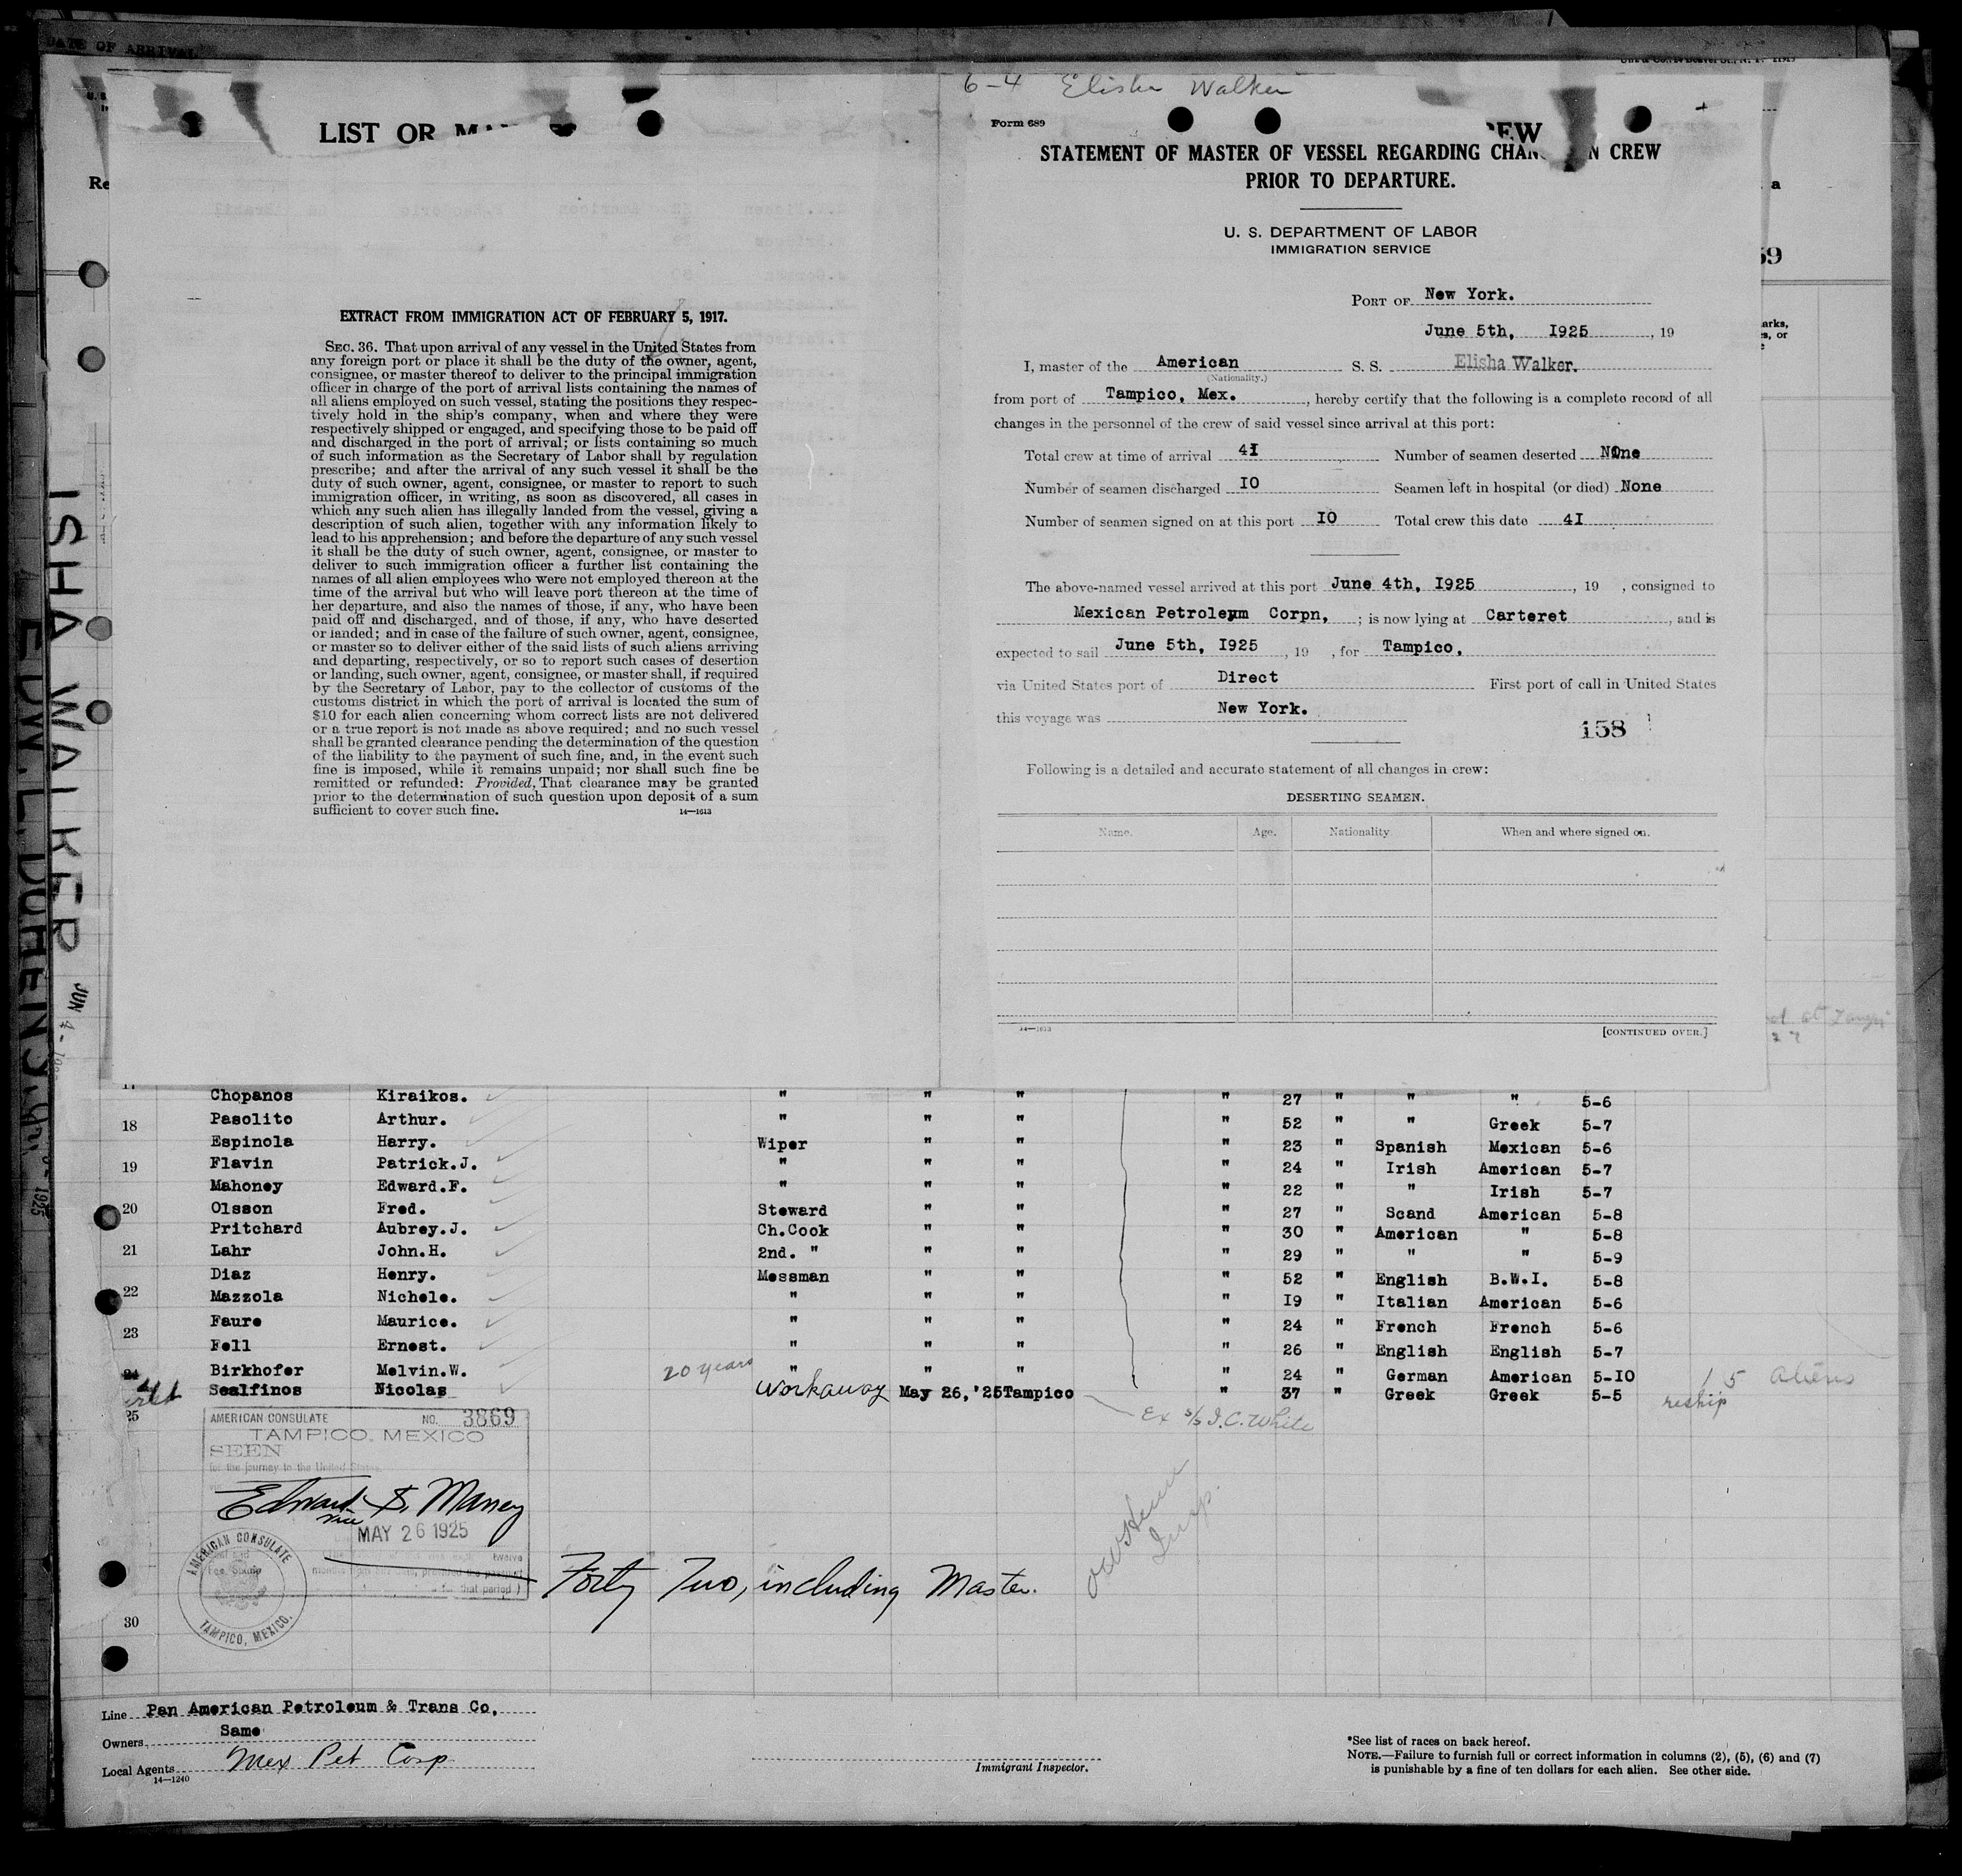 DATE OF ARRIVAL
6-4 Elisha Walker
LIST OR
Form 689
STATEMENT OF MASTER OF VESSEL REGARDING CHAN N CREW
PRIOR TO DEPARTURE.
U. S. DEPARTMENT OF LABOR
IMMIGRATION SERVICE
PORT OF New York.
June 5th, I925, 19
I, master of the American S. S. Elisha Walker.
(Nationality.)
from port of Tampico, Mex., hereby certify that the following is a complete record of all
changes in the personnel of the crew of said vessel since arrival at this port:
Total crew at time of arrival 4I Number of seamen deserted None
Number of seamen discharged IO Seamen left in hospital (or died) None
Number of seamen signed on at this port IO Total crew this date 4I
The above-named vessel arrived at this port June 4th, I925, 19 , consigned to
Mexican Petroleum Corpn, ; is now lying at Carteret, and is
expected to sail June 5th, I925, 19 , for Tampico,
via United States port of Direct First port of call in United States
this voyage was New York.
158
Following is a detailed and accurate statement of all changes in crew:
DESERTING SEAMEN.
Name. Age. Nationality When and where signed on.
14—1613 [CONTINUED OVER.]
EXTRACT FROM IMMIGRATION ACT OF FEBRUARY 5, 1917.
SEC. 36. That upon arrival of any vessel in the United States from
any foreign port or place it shall be the duty of the owner, agent,
consignee, or master thereof to deliver to the principal immigration
officer in charge of the port of arrival lists containing the names of
all aliens employed on such vessel, stating the positions they respec-
tively hold in the ship's company, when and where they were
respectively shipped or engaged, and specifying those to be paid off
and discharged in the port of arrival; or lists containing so much
of such information as the Secretary of Labor shall by regulation
prescribe; and after the arrival of any such vessel it shall be the
duty of such owner, agent, consignee, or master to report to such
immigration officer, in writing, as soon as discovered, all cases in
which any such alien has illegally landed from the vessel, giving a
description of such alien, together with any information likely to
lead to his apprehension; and before the departure of any such vessel
it shall be the duty of such owner, agent, consignee, or master to
deliver to such immigration officer a further list containing the
names of all alien employees who were not employed thereon at the
time of the arrival but who will leave port thereon at the time of
her departure, and also the names of those, if any, who have been
paid off and discharged, and of those, if any, who have deserted
or landed; and in case of the failure of such owner, agent, consignee,
or master so to deliver either of the said lists of such aliens arriving
and departing, respectively, or so to report such cases of desertion
or landing, such owner, agent, consignee, or master shall, if required
by the Secretary of Labor, pay to the collector of customs of the
customs district in which the port of arrival is located the sum of
$10 for each alien concerning whom correct lists are not delivered
or a true report is not made as above required; and no such vessel
shall be granted clearance pending the determination of the question
of the liability to the payment of such fine, and, in the event such
fine is imposed, while it remains unpaid; nor shall such fine be
remitted or refunded: Provided, That clearance may be granted
prior to the determination of such question upon deposit of a sum
sufficient to cover such fine. 14—1613
ISHA WALKER JUN 4-
EDW. L. DOHENY
Chopanos Kiraikos. " " " " 27 " " " 5-6
18 Pasolito Arthur. " " " " 52 " " Greek 5-7
Espinola Harry. Wiper " " " 23 " Spanish Mexican 5-6
19 Flavin Patrick.J. " " " " 24 " Irish American 5-7
Mahoney Edward.F. " " " " 22 " " Irish 5-7
20 Olsson Fred. Steward " " " 27 " Scand American 5-8
Pritchard Aubrey.J. Ch.Cook " " " 30 " American " 5-8
21 Lahr John.H. 2nd. " " " " 29 " " " 5-9
Diaz Henry. Messman " " " 52 " English B.W.I. 5-8
22 Mazzola Nichole. " " " " I9 " Italian American 5-6
Faure Maurice. " " " " 24 " French French 5-6
23 Fell Ernest. " " " " 26 " English English 5-7
24 Birkhofer Melvin.W. 20 years " " " " 24 " German American 5-IO 15 aliens
Sealfinos Nicolas Workaway May 26,'25Tampico " 37 " Greek Greek 5-5 reship
25
Ex s/s I.C. White
AMERICAN CONSULATE NO. 3869
TAMPICO, MEXICO
SEEN
for the journey to the United States.
Edward S. Maney
vice
MAY 26 1925
twelve
AMERICAN CONSULATE
Fee Stamp
TAMPICO, MEXICO.
Forty Two, including Master.
Insp.
30
Line Pan American Petroleum & Trans Co,
Owners Same
Local Agents Mex Pet Corp
14—1240
Immigrant Inspector.
*See list of races on back hereof.
NOTE.—Failure to furnish full or correct information in columns (2), (5), (6) and (7)
is punishable by a fine of ten dollars for each alien. See other side.